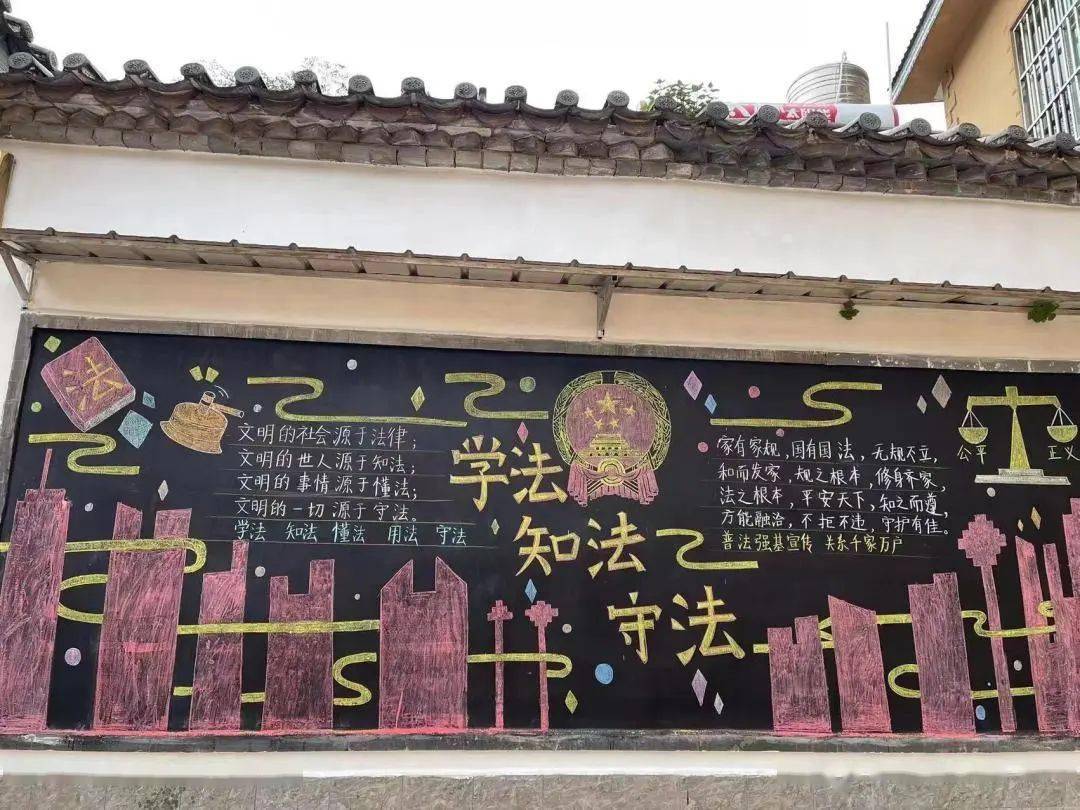 法
文明的社会源于法律；
文明的世人源于知法；
文明的事情源于懂法；
文明的一切源于守法。
学法 知法 懂法 用法 守法
学法
知法
守法
家有家规，国有国法，无规不立，
和而发家，规之根本，修身齐家，
法之根本，平安天下，知之而遵，
方能融洽，不拒不违，守护有佳。
普法强基宣传 关系千家万户
公平 正义
太阳